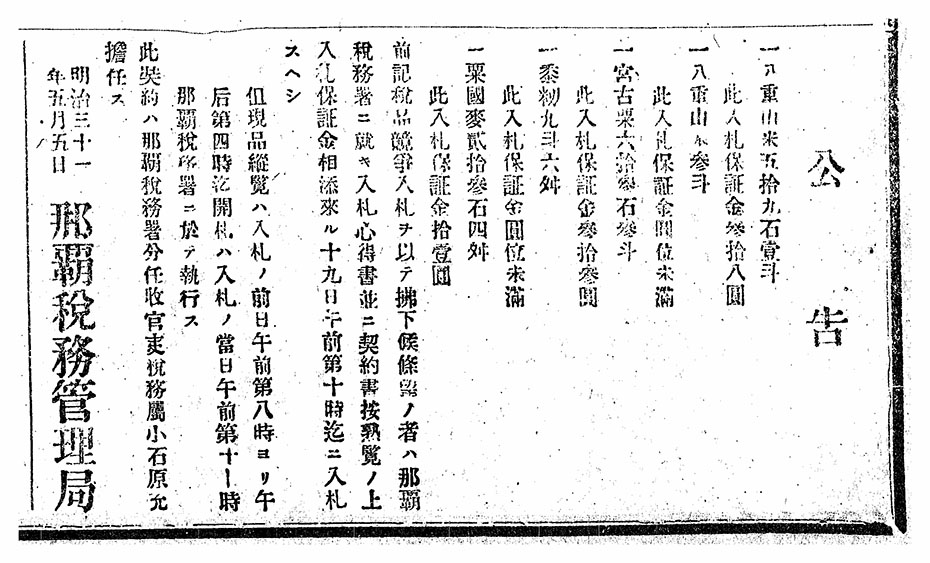 公告
一八重山米五拾九石壹斗
此入札保証金參拾八圓
一八重山米參斗
此入札保証金圓位未滿
一宮古粟六拾參石參斗
此入札保証金參拾參圓
一黍籾九斗六舛
此入札保証金圓位未滿
一粟國麥貳拾參石四舛
此入札保証金拾壹圓
前記税品競爭入札ヲ以テ拂下候條望ノ者ハ那覇
税務署ニ就キ入札心得書並ニ契約書按熟覽ノ上
入札保証金相添來ル十九日午前第十時迄ニ入札
スヘシ
但現品縦覽ハ入札ノ前日午前第八時ヨリ午
后第四時迄開札ハ入札ノ當日午前第十一時
那覇税務署ニ於テ執行ス
此契約ハ那覇税務署分任收官吏税務屬小石原允
擔任ス
明治三十一
年五月五日
那覇税務管理局